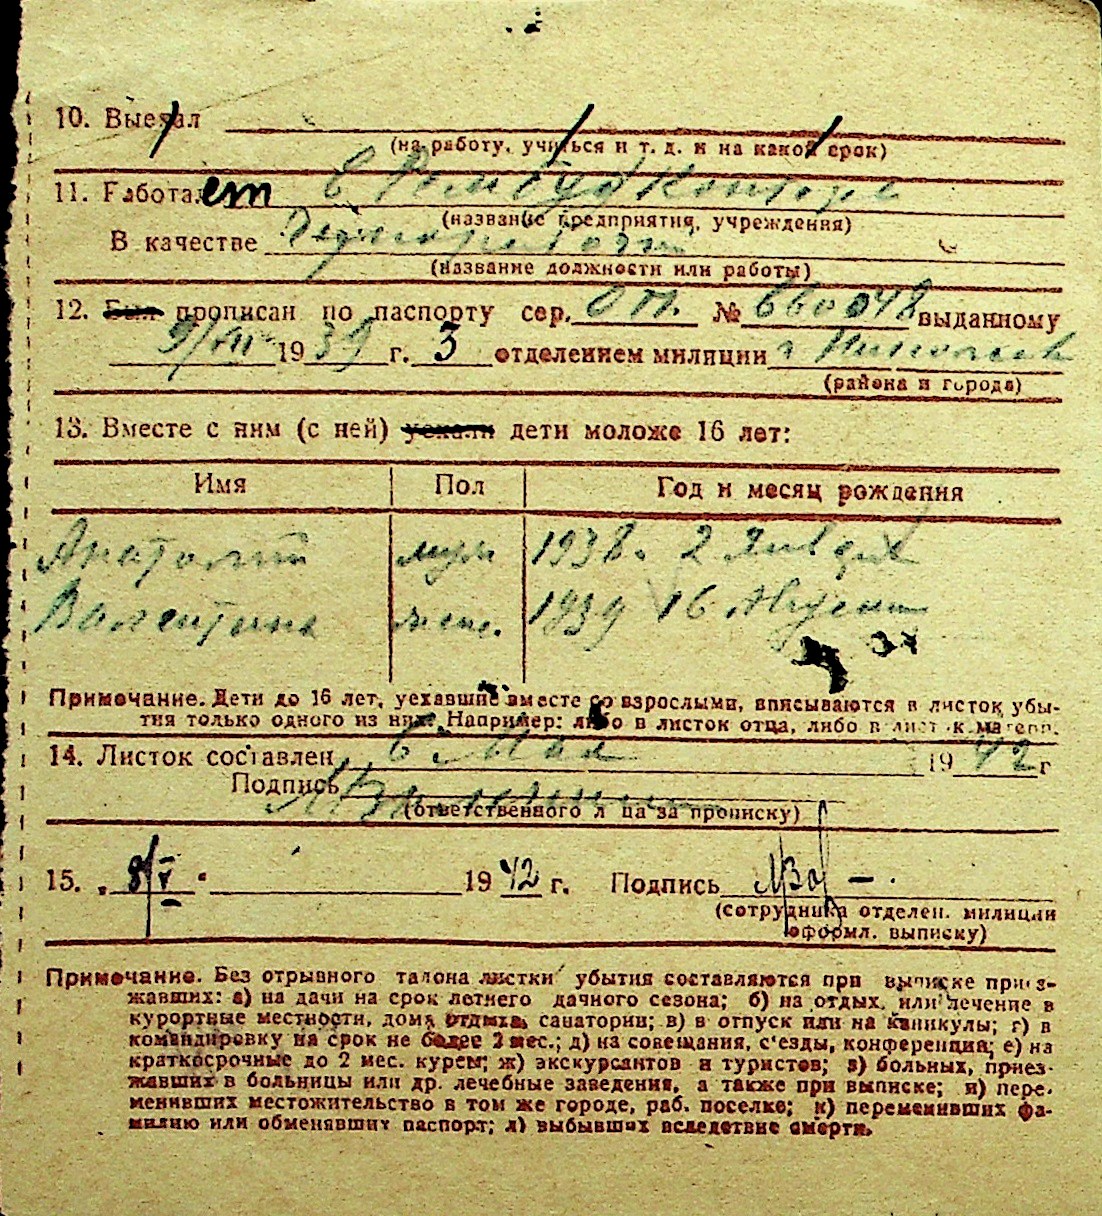 10. Выехал
(на работу, учиться и т. д. и на какой срок)
11. Работает в
(название предприятия, учреждения)
В качестве
(название должности или работы)
12. Был прописан по паспорту сер. № 660048 выданному
9/VII 1939 г. 3 отделением милиции г Николаев
(района и города)
13. Вместе с ним (с ней) уехали дети моложе 16 лет:
Имя Пол Год и месяц рождения
Анатолий муж 1938. 2 Января
Валентина жен. 1939 16 Август
Примечание. Дети до 16 лет, уехавшие вместе со взрослыми, вписываются в листок убы-
тия только одного из них. Например: либо в листок отца, либо в листок матери.
14. Листок составлен 6 Мая 1942 г
Подпись
(ответственного лица за прописку)
15. „ 8/V " 1942 г. Подпись
(сотрудника отделен. милиции
оформл. выписку)
Примечание. Без отрывного талона листки убытия составляются при выписке приез-
жавших: а) на дачи на срок летнего дачного сезона; б) на отдых, или лечение в
курортные местности, дома отдыха, санатории; в) в отпуск или на каникулы; г) в
командировку на срок не более 2 мес.; д) на совещания, с'езды, конференции; е) на
краткосрочные до 2 мес. курсы; ж) экскурсантов и туристов; з) больных, приез-
жавших в больницы или др. лечебные заведения, а также при выписке; и) пере-
менивших местожительство в том же городе, раб. поселке; к) переменивших фа-
милию или обменявших паспорт; л) выбывших вследствие смерти.